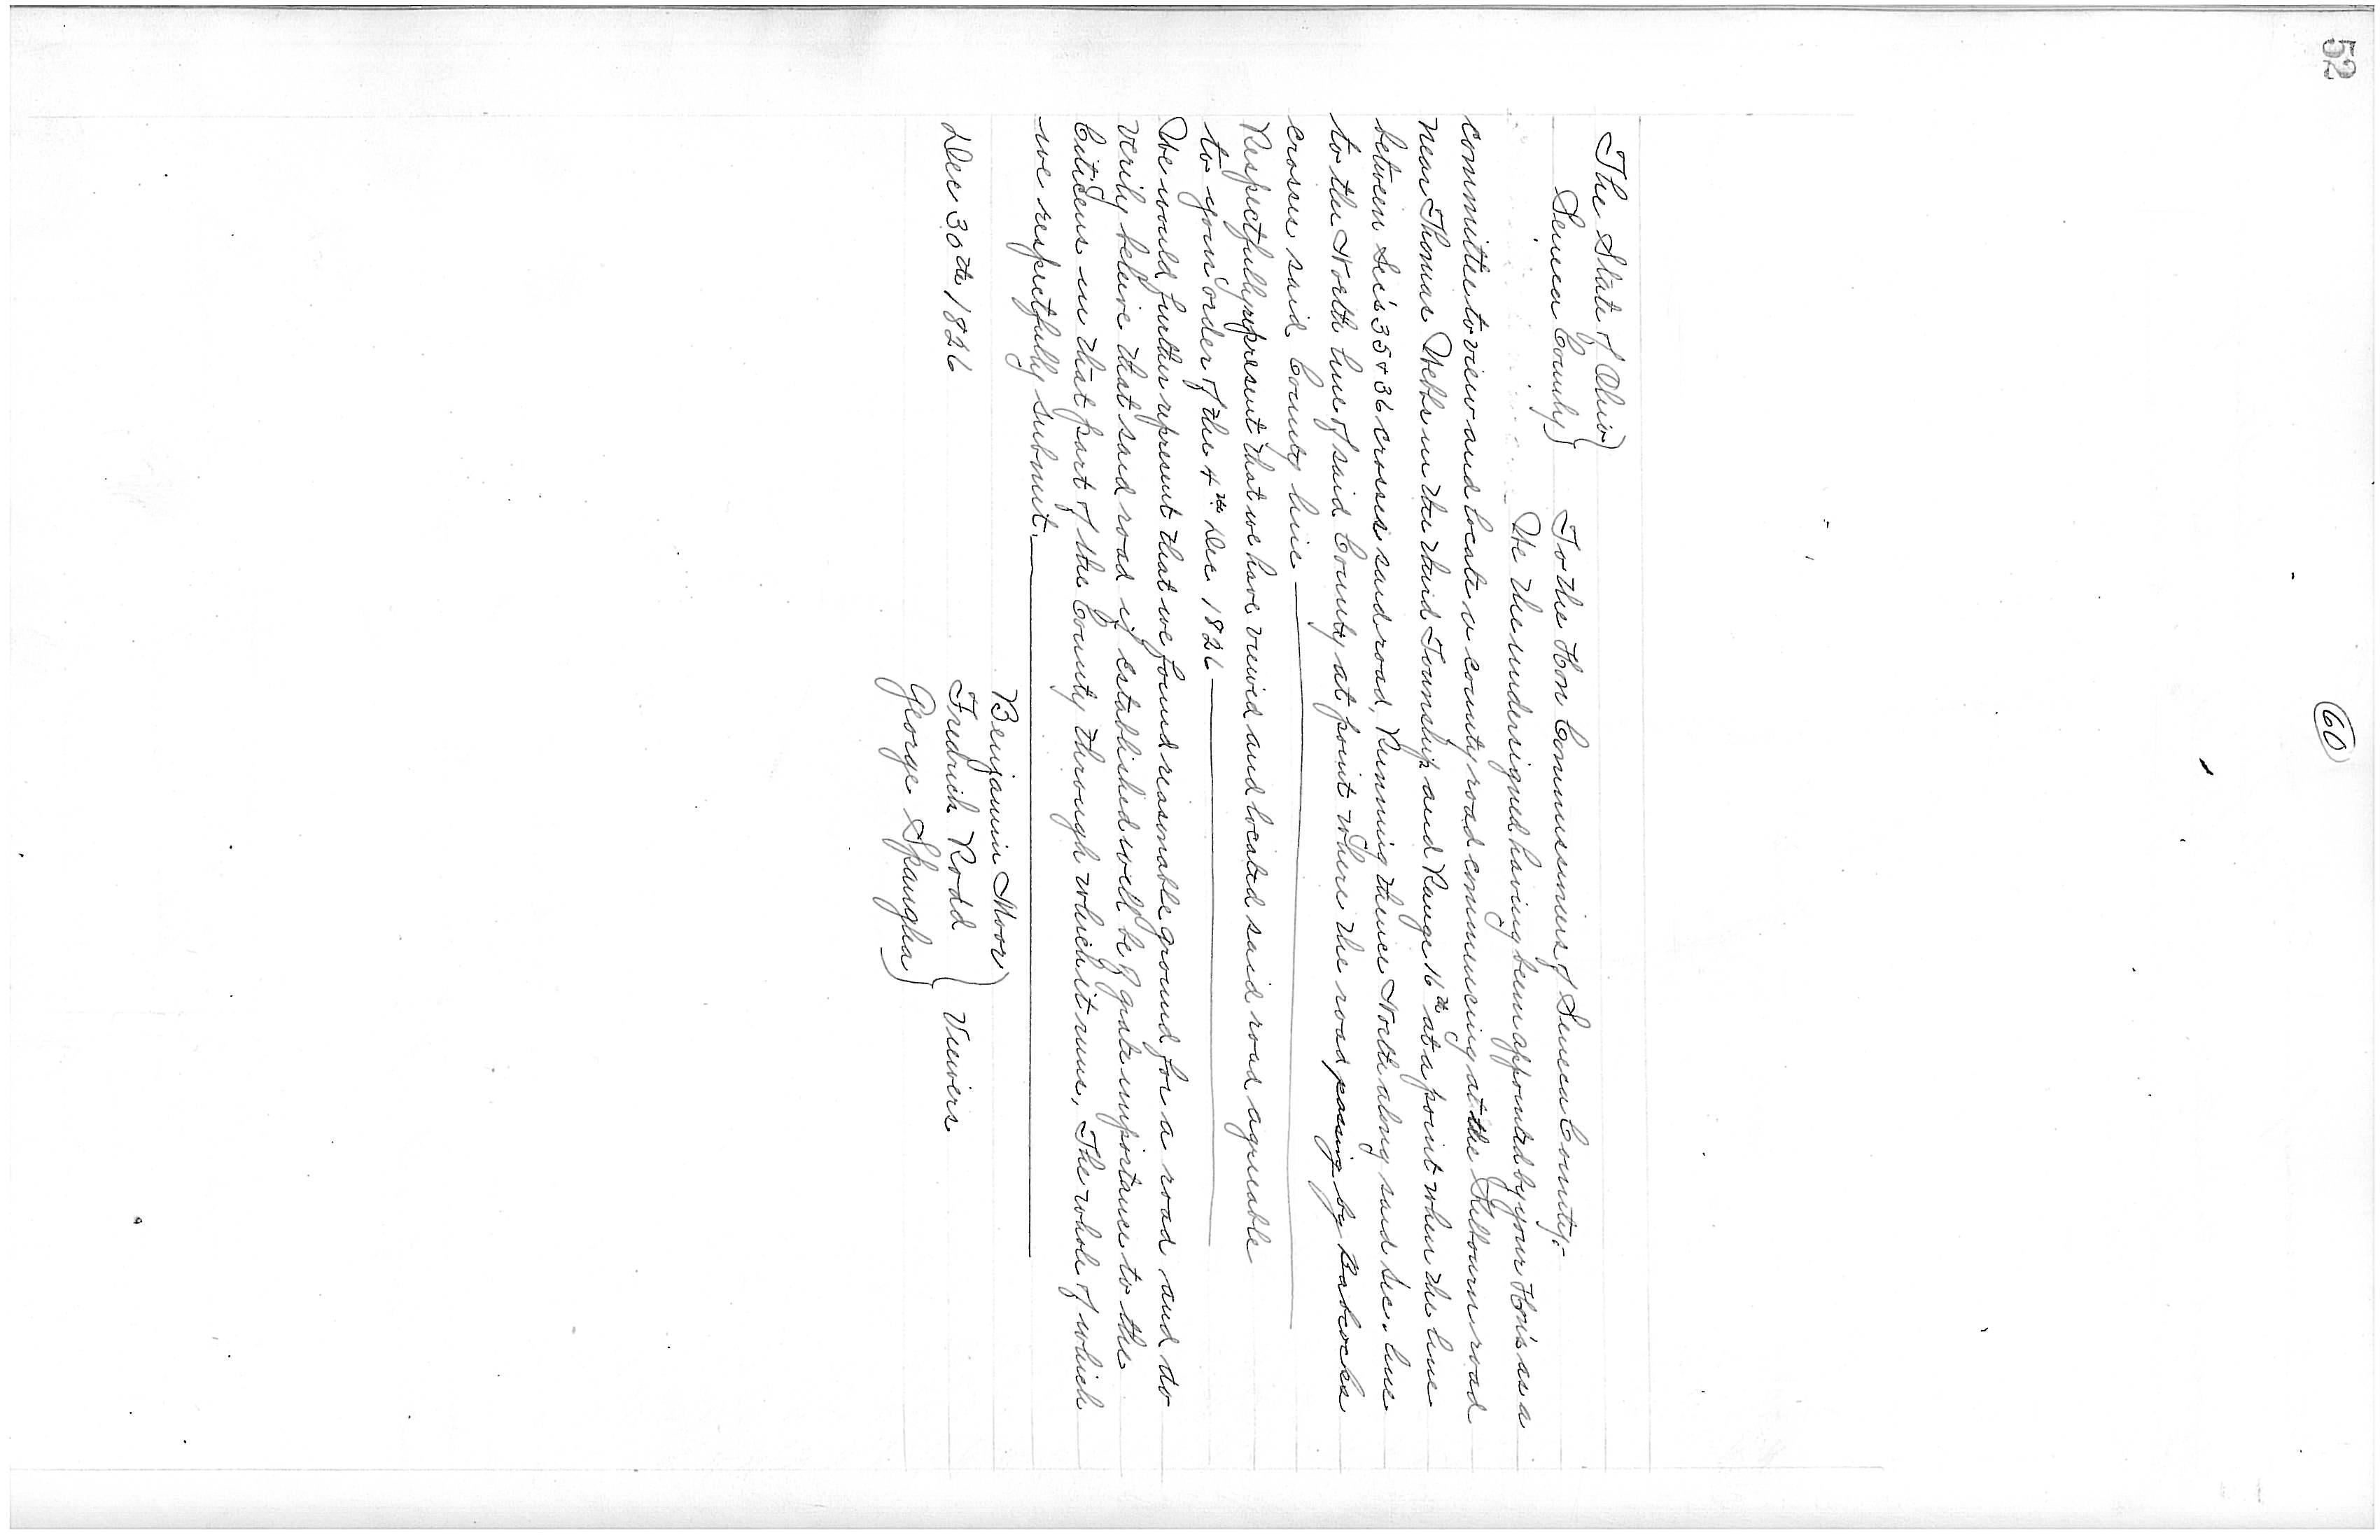 52
60
The State of Ohio }
Seneca County }
To the Hon Commissioners of Seneca County:
We the undersigned having been appointed by your Hon's as a
committee to view and locate a county road commencing at the road
near Thomas Webbs in the third Township and Range 16th at a point where the line
between Sec's 35 & 36 crosses said road, Running thence North along said Sec. line
to the North line of said County at point where the road passing by Babcocks
crosses said County line
Respectfully represent that we have viewed and located said road agreeable
to your order of the 4th Dec 1826
We would further represent that we found reasonable ground for a road and do
verily believe that said road if established will be of grate importance to the
Citizens in that part of the County through which it runs, The whole of which
we respectfully submit.
Benjamin Moor }
Dec 30th 1826 Fredrich Rodd } Viewers
George Spangler }